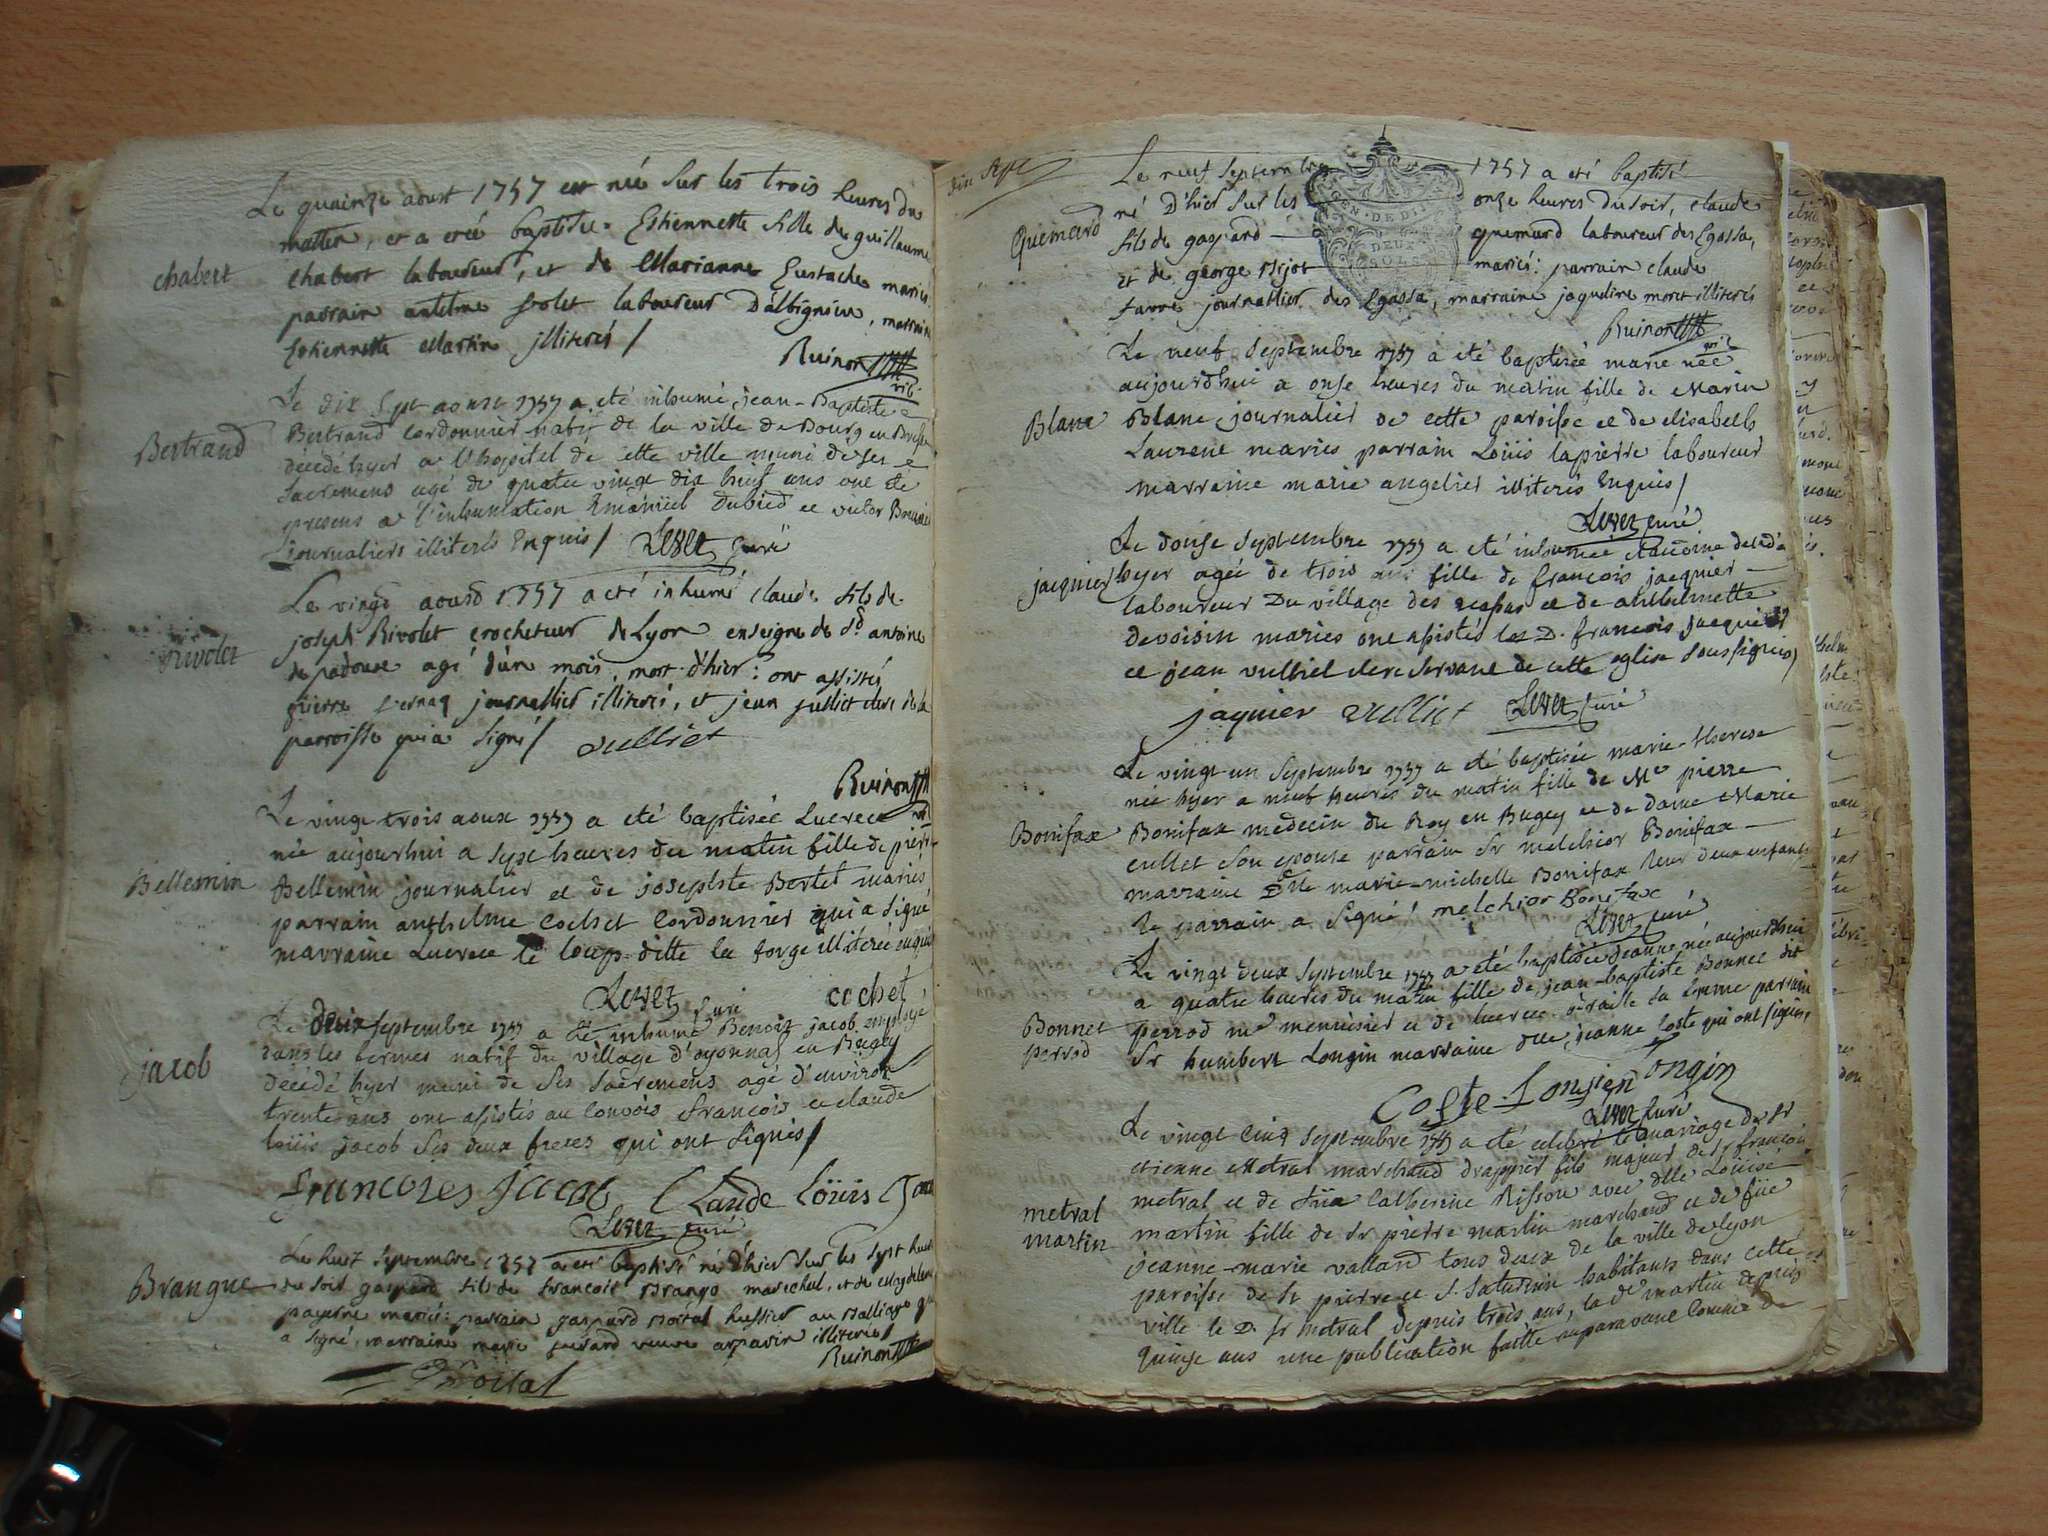 Le quainze aoust 1757 est née sur les trois heures du
mattin, et a etée baptisée Estiennette fille de guillaume
chabert
chabert laboureur, et de Marianne Eustache mariés
parrain antelme laboureur D'albignieu, marraine
Estiennette Martin illiterés /
Ruinon
Le dix sept aoust 1757 a eté inhumé jean-Baptiste
Bertrand
Bertrand cordonnier natif de la ville de Bourg en Bresse
décédé hyer a l'hopital de cette ville muni de ses
sacremens agé de quatre vingt dix huit ans ont été
presens a l'inhumation Emanuel Dubied et victor
journaliers illiterés Enquis / curé
Le vingt aoust 1757 a eté inhumé claude fils de
rivolet
joseph Rivolet crocheteur de Lyon enseigne de St. antoine
de padoue agé d'un mois, mort d'hier: ont assistés
pierre journallier illiterés, et jean julliet clerc de la
parroisse qui a signé / vulliet
Ruinon
Le vingt trois aoux 1757 a eté baptisée Lucrece
née aujourdhui a sept heures du matin fille de pierre
Bellemin
Bellemin journalier et de josephte Bertet mariés
parrain anthelme Cochet Cordonnier qui a signé
marraine Lucrece le loup ditte la forge illiterée enquis
curé cochet
Le deux septembre 1757 a eté inhumé Benoit jacob employé
jacob
dans les fermes natif du village d'oyonnas en Bugey
décédé hyer muni de ses sacremens agé d'environ
trente ans ont asistés au Convois francois et claude
loüis jacob ses deux freres qui ont signés /
francoies jacob Claude Loüis
curé
Le huit septembre 1757 a eté baptisé né d'hier sur les sept heures
Brangue
du soir gaspard fils de francois Brango marechal, et de
mariés: parrain gaspard hussier au Balliage qui
a signé, marraine marie veuve illiterée /
Ruinon
Le neuf septembre 1757 a eté baptisé
né D'hier sur les onze heures du soir, claude
Quemard
fils de gaspard quemard laboureur des Egassa,
et de george mariés: parrain claude
favre journallier des Egassa, marraine jaqueline moret illiterés
GEN·DE·DI
DEUX
SOLS
Ruinon
Le neuf septembre 1757 a eté baptisée marie née
aujourdhui a onse heures du matin fille de Marin
Blanc
Blanc journalier de cette paroisse et de elisabeth
Laurent mariés parrain Loüis lapierre laboureur
marraine marie angelier illiterés Enquis /
curé
Le douse septembre 1757 a eté inhumée
jacquier
hyer agée de trois ans fille de francois jacquier
laboureur Du village des et de anthelmette
devoisin mariés ont asistés les D. francois jacquier
et jean vulliet clerc servant de cette eglise soussignés /
jaquier vulliet curé
Le vingt un septembre 1757 a eté baptisée marie-therese
née hyer a neuf heures du matin fille de Me pierre
Bonifax
Bonifax medecin du Roy en Bugey et de dame Marie
cullet son epouse parrain sr melchior Bonifax
marraine Dlle marie-michelle Bonifax leur deux enfants
le parrain a signé / melchior Bonifax
curé
Le vingt deux septembre 1757 a eté baptisée jeanne née aujourdhui
a quatre heures du matin fille de jean-baptiste Bonnet dit
Bonnet
perrod
perrod me menuisier et de lucrece sa femme parrain
Sr humbert Longin marraine dlle jeanne Coste qui ont signés,
Coste Longin
curé
Le vingt cinq septembre 1757 a eté celebré le mariage de sr
etienne Metral marchand drappier fils majeur de sr francois
metral
martin
metral et de Catherine Risson avec dlle Loüise
martin fille de sr pierre martin marchand et de
jeanne-marie vallard tous deux de la ville de lyon
paroisse de st pierre et S. Saturnin habitants dans cette
ville le D. sr metral depuis trois ans, la de martin depuis
quinze ans une publication faitte auparavant Comme de